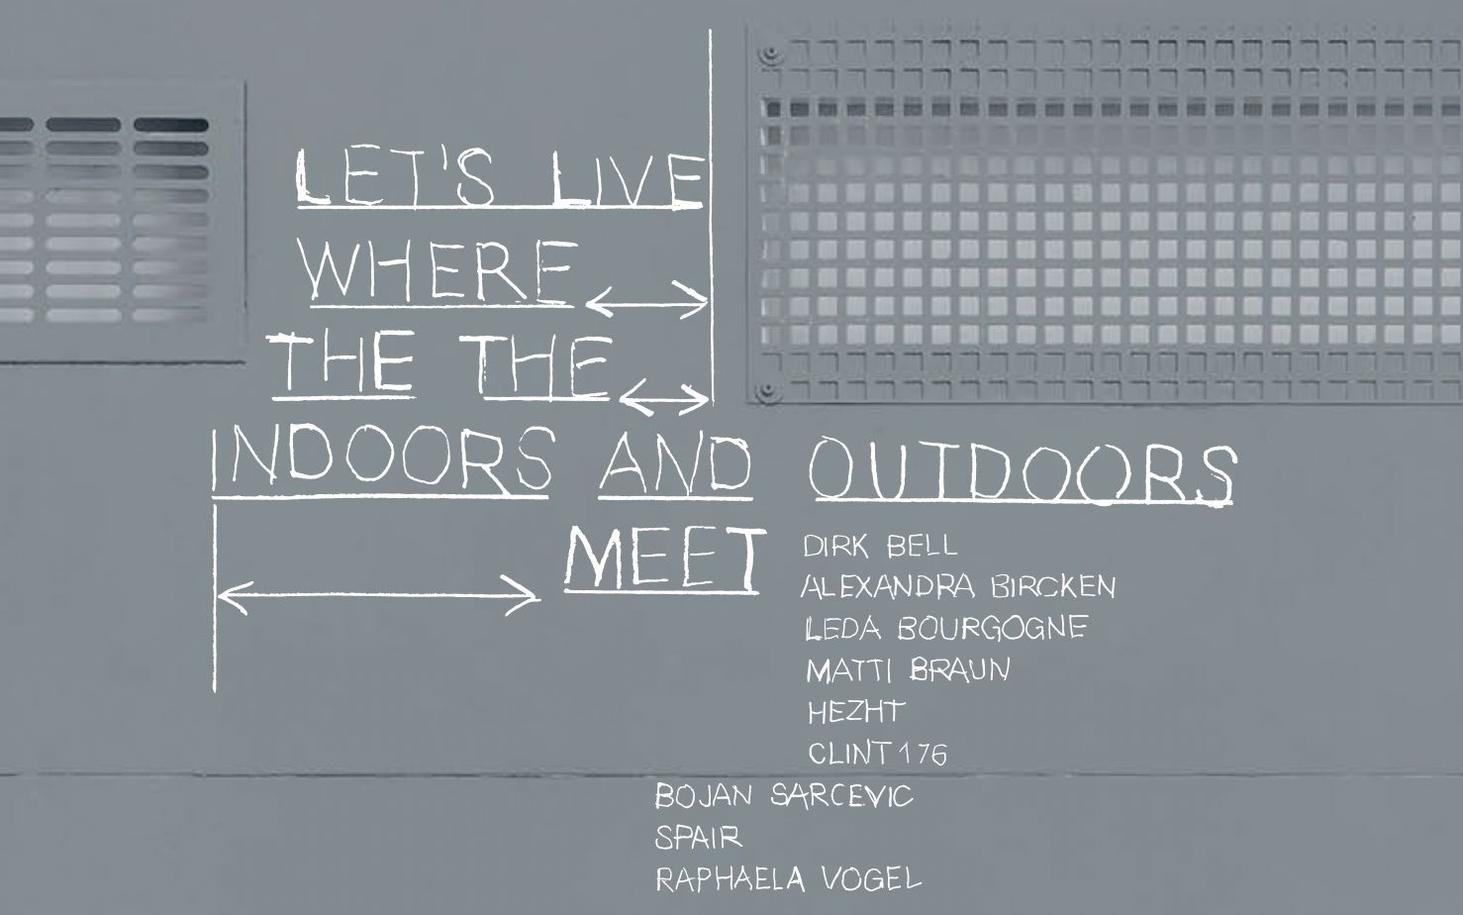 LET'S LIVE
WHERE
THE THE
INDOORS AND OUTDOORS
MEET
DIRK BELL
ALEXANDRA BIRCKEN
LEDA BOURGOGNE
MATTI BRAUN
HEZHT
CLINT176
BOJAN SARCEVIC
SPAIR
RAPHAELA VOGEL